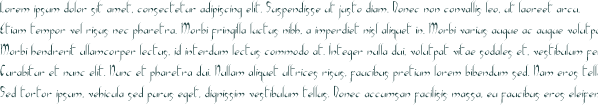 Lorem ipsum dolor sit amet, consectetur adipiscing elit. Suspendisse ut justo diam. Donec non convallis leo, ut laoreet arcu.
Etiam tempor vel risus nec pharetra. Morbi fringilla luctus nibh, a imperdiet nisl aliquet in. Morbi varius augue ac augue volutp
Morbi hendrerit ullamcorper lectus, id interdum lectus commodo at. Integer nulla dui, volutpat vitae sodales et, vestibulum pe
Curabitur et nunc elit. Nunc et pharetra dui. Nullam aliquet ultrices risus, faucibus pretium lorem bibendum sed. Nam eros tell
Sed tortor ipsum, vehicula sed purus eget, dignissim vestibulum tellus. Donec accumsan facilisis massa, eu faucibus eros eleifen